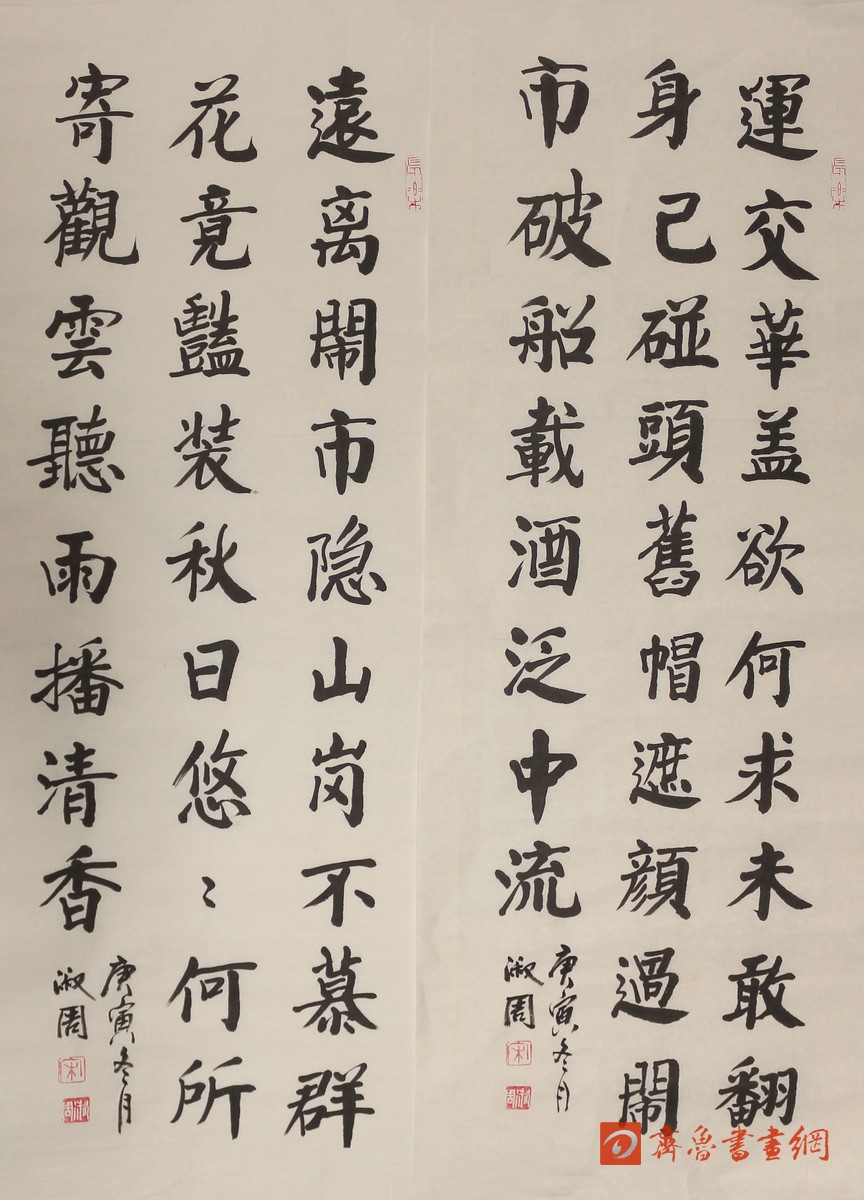 運交華盖欲何求未敢翻
身已碰頭舊帽遮顔過鬧
市破船載酒泛中流
庚寅冬月
淑周
長樂
遠离鬧市隐山岗不慕群
花竟豔装秋日悠〻何所
寄觀雲聽雨播清香
庚寅冬月
淑周
長樂
齊魯書畫網